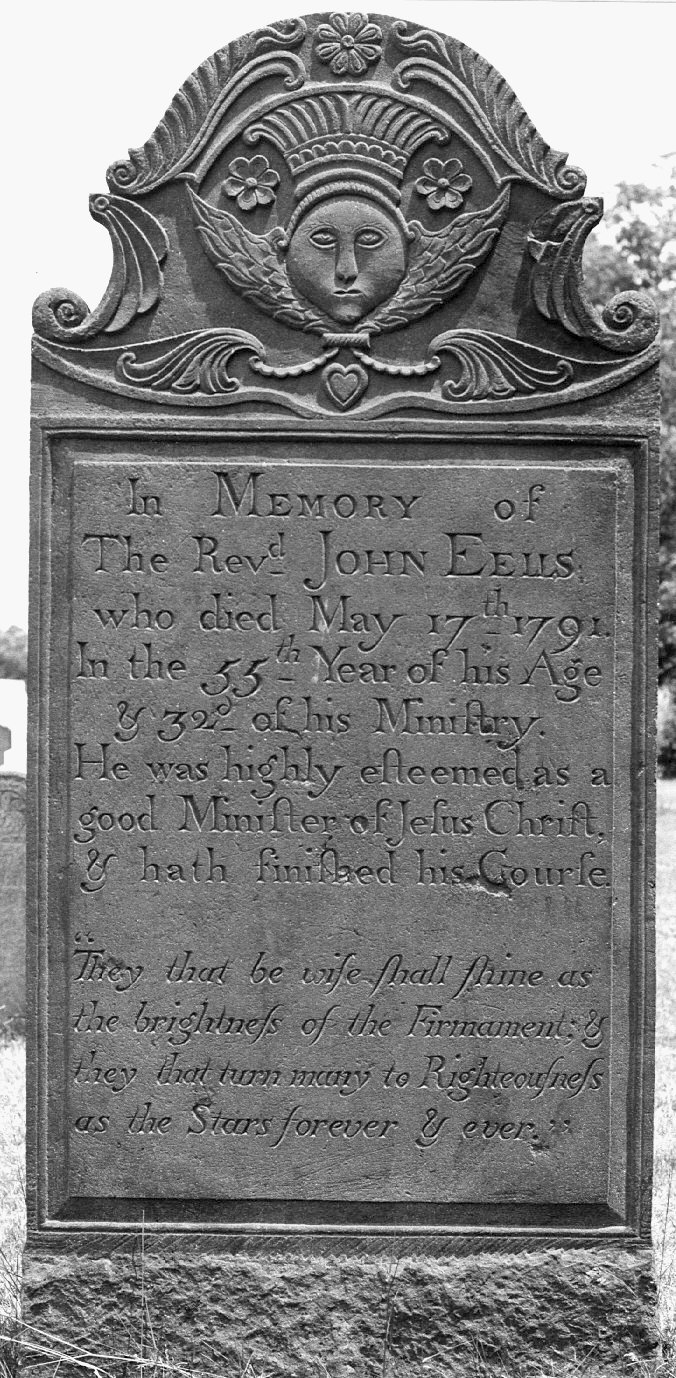 In MEMORY of
The Revᵈ JOHN EELLS
who died May 17ᵗʰ 1791.
In the 55ᵗʰ Year of his Age
& 32ᵈ of his Miniſtry.
He was highly eſteemed as a
good Miniſter of Jeſus Chriſt,
& hath finiſhed his Courſe.
“They that be wiſe ſhall ſhine as
the brightneſs of the Firmament; &
they that turn many to Righteouſneſs
as the Stars forever & ever.”